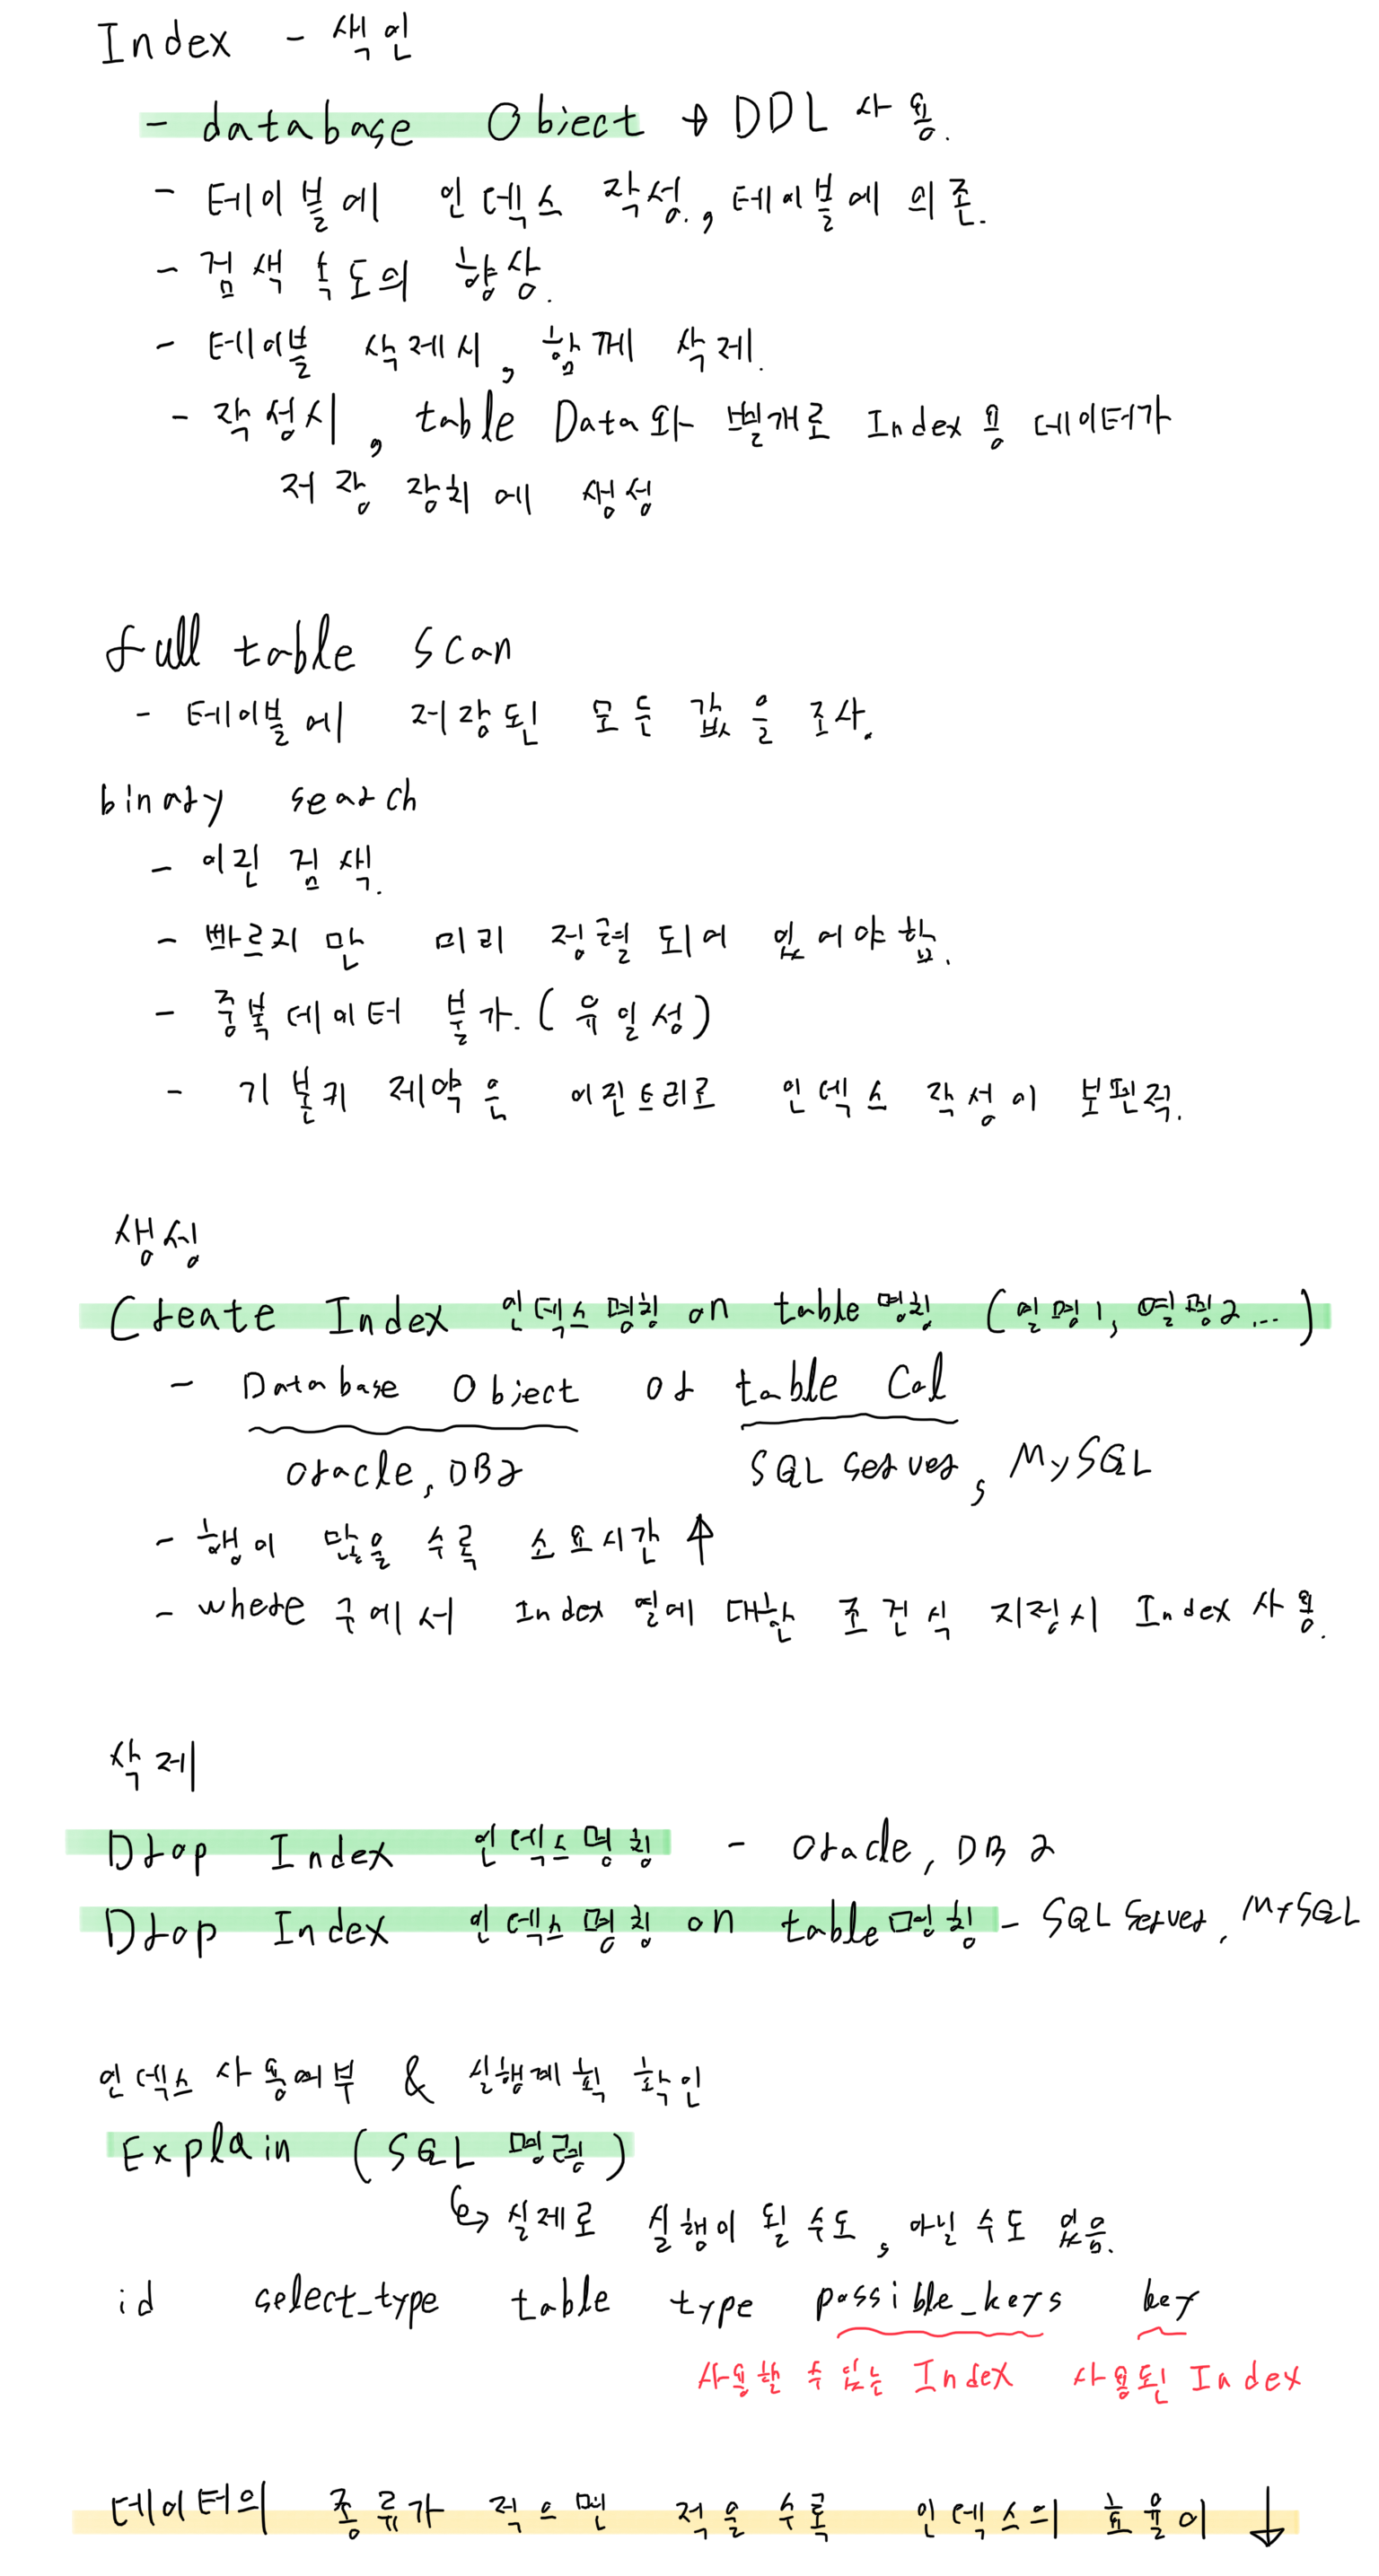 Index - 색인
- database Object → DDL 사용.
- 테이블에 인덱스 작성., 테이블에 의존.
- 검색 속도의 향상.
- 테이블 삭제시, 함께 삭제.
- 작성시, table Data와 별개로 Index용 데이터가
저장 장치에 생성
full table scan
- 테이블에 저장된 모든 값을 조사.
binary search
- 이진 검색.
- 빠르지만 미리 정렬 되어 있어야함.
- 중복데이터 불가. (유일성)
- 기본키 제약은 이진트리로 인덱스 작성이 보편적.
생성
Create Index 인덱스명칭 on table명칭 (열명1, 열명2...)
- Database Object or table Col
oracle, DB2 SQL Server, MySQL
- 행이 많을 수록 소요시간 ↑
- where 구에서 Index 열에 대한 조건식 지정시 Index 사용.
삭제
Drop Index 인덱스명칭 - oracle, DB2
Drop Index 인덱스명칭 on table명칭 - SQL Server, MySQL
인덱스 사용여부 & 실행계획 확인
Explain (SQL 명령)
↳ 실제로 실행이 될 수도, 아닐 수도 있음.
id select_type table type possible_keys key
사용할 수 있는 Index 사용된 Index
데이터의 종류가 적으면 적을 수록 인덱스의 효율이 ↓